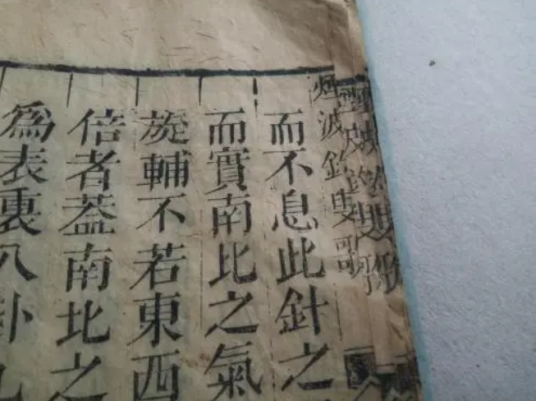 煙波釣叟歌
而不息此針之
而實南北之氣
旋輔不若東西
倍者葢南北之
為表裏八卦